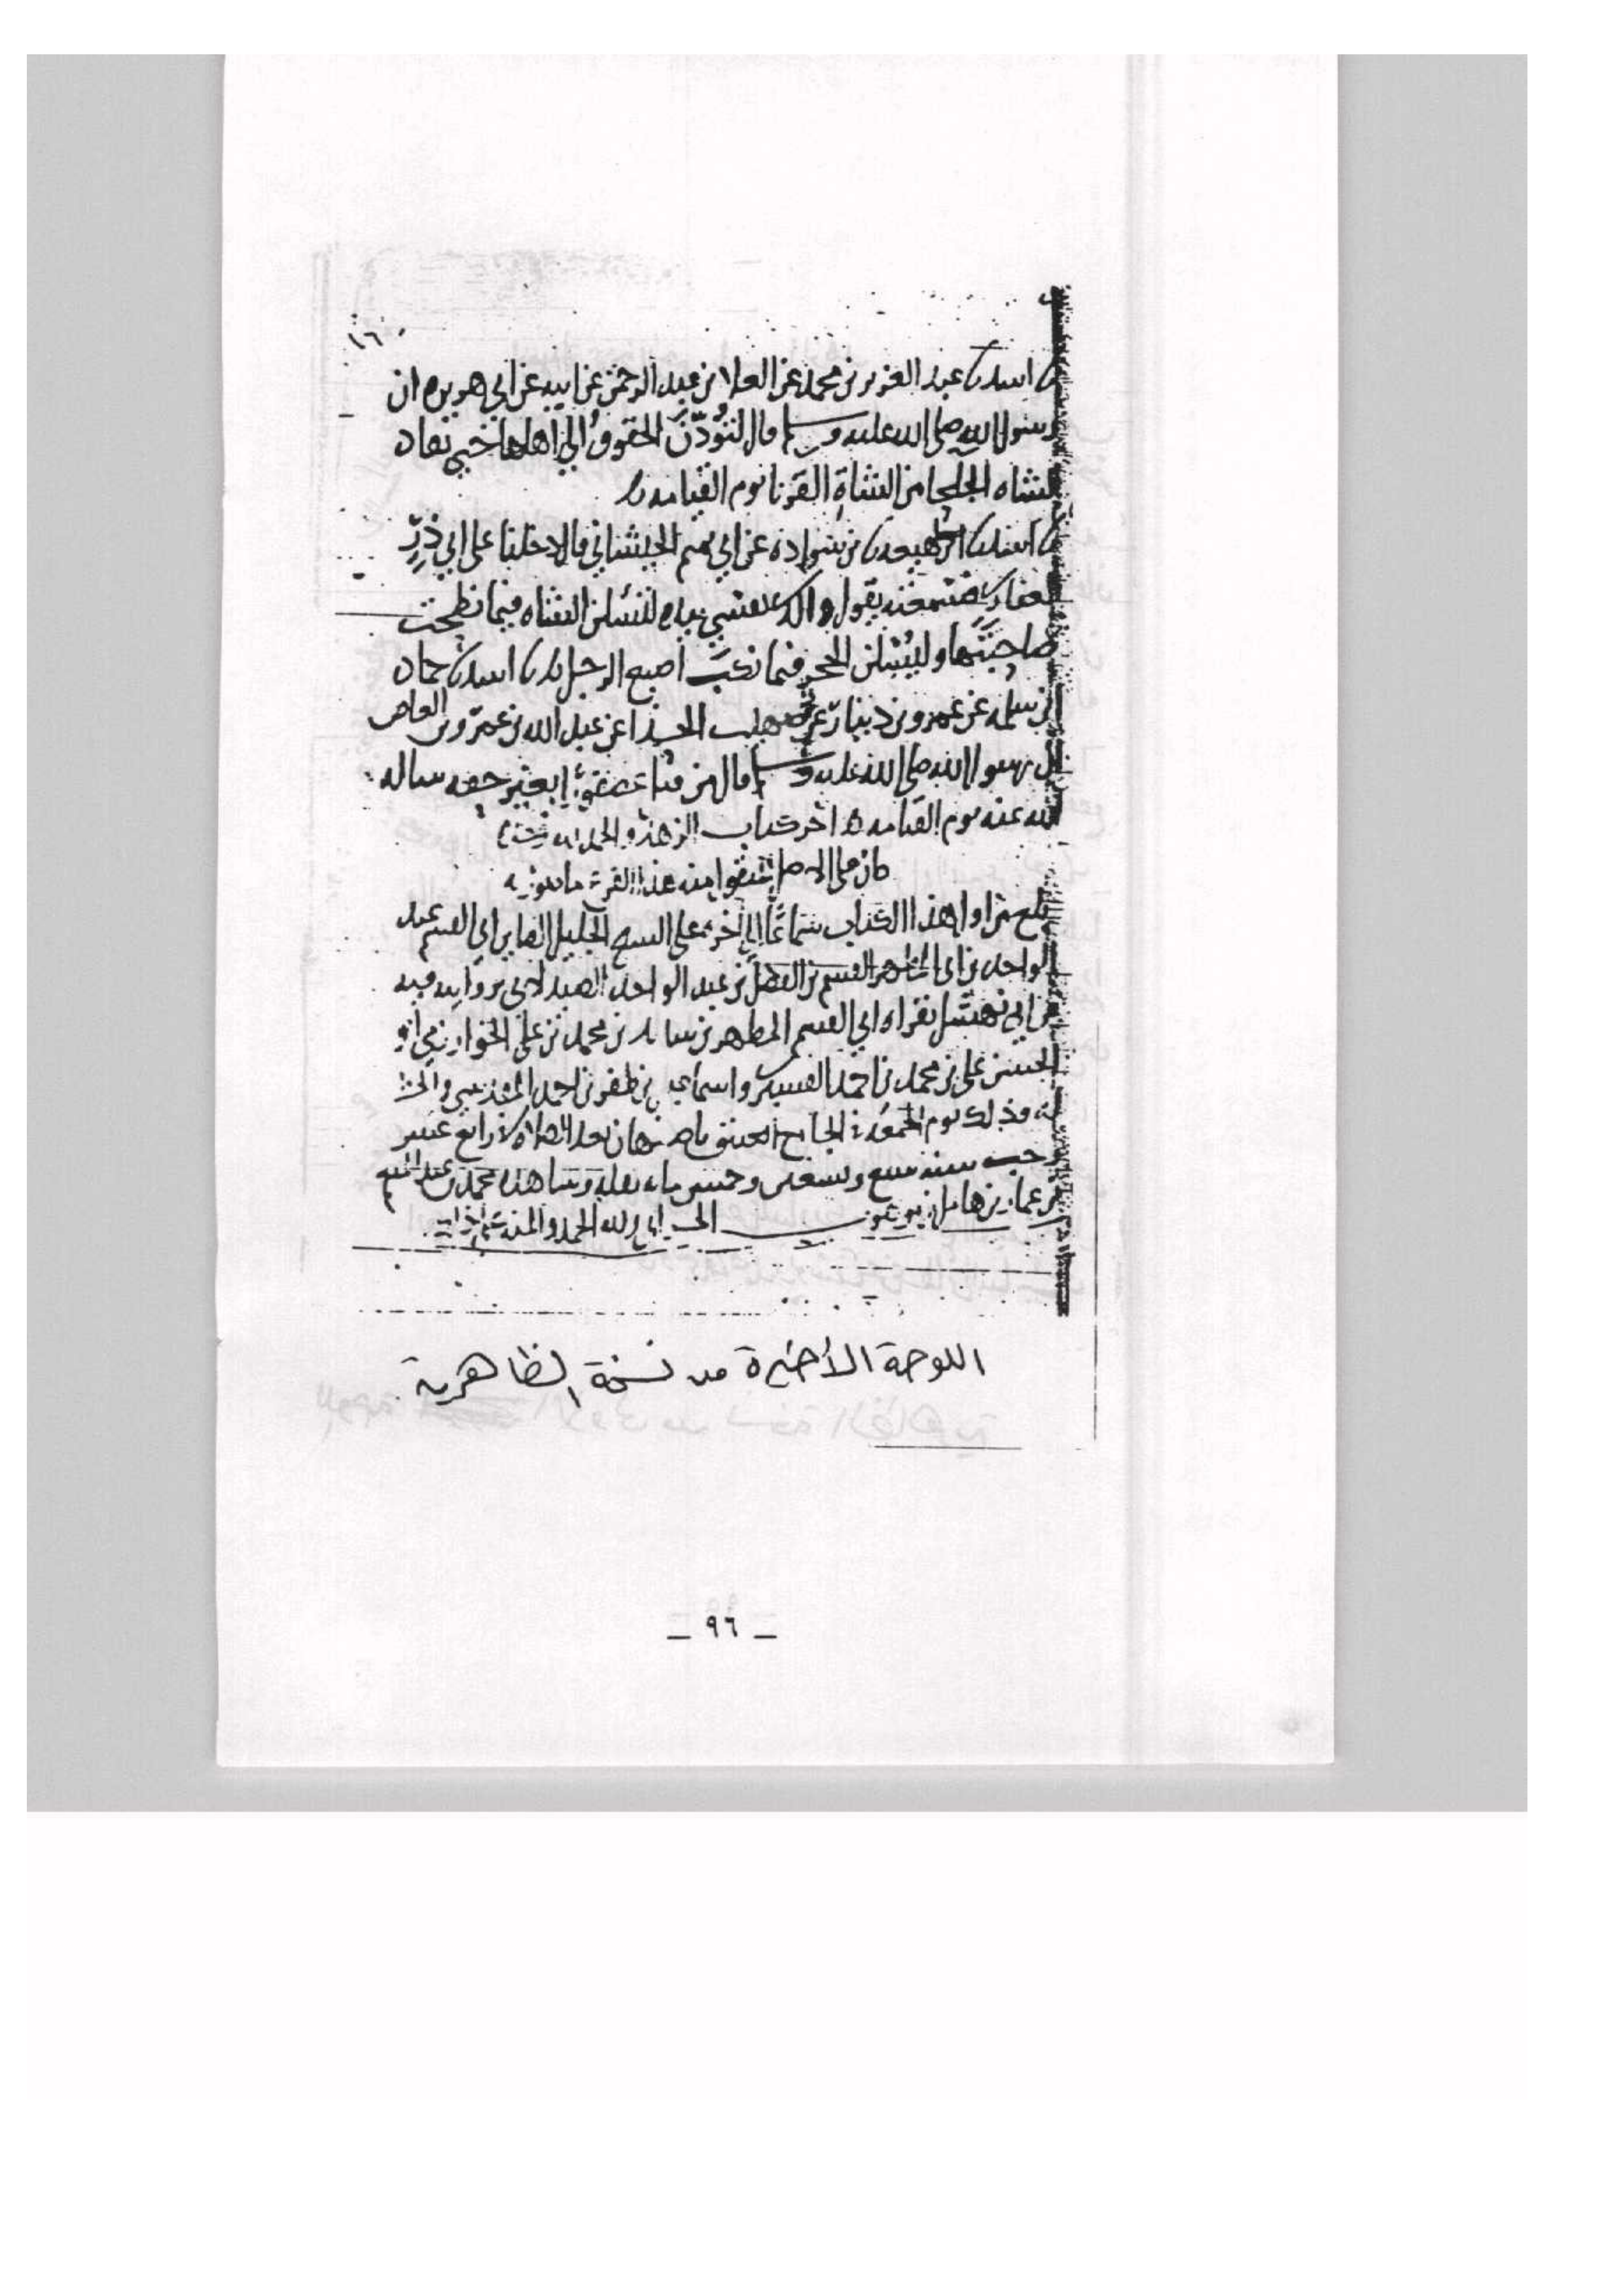 ١٦
اسد نا عبد العزيز بن محمد عن العلا بن عبد الرحمن عن ابيه عن ابي هريره ان
رسول الله صلى الله عليه وسلم قال لتؤدن الحقوق الى اهلها حتى تقاد
الشاه الجلحا من الشاة القرنا يوم القيامه
اسد نا ابن لهيعه نا بن سواده عن ابي تميم الجيشاني قال دخلنا على ابي ذر
الغفاري فسمعته يقول والذي نفسي بيده لتسئلن الشاه فيما نطحت
صاحبتها وليسئلن الحجر فيما نكب اصبع الرجل نا اسد نا حماد
بن سلمه عن عمرو بن دينار عن صهيب الحذا عن عبد الله بن عمرو بن العاص
ان رسول الله صلى الله عليه وسلم قال من قتل عصفورا بغير حقه ساله
الله عنه يوم القيامه اخر كتاب الزهد والحمد لله
بلغ من اول هذا الكتاب سماعا الى اخره على الشيخ الجليل ابي القسم عبد
الواحد بن ابي المطهر القسم بن الفضل بن عبد الواحد الصيدلاني بروايته فيه
عن ابي نهشل بقراه ابي القسم المطهر بن محمد بن علي الخوارزمي
الحسن علي بن محمد بن احمد واسماعيل بن ظفر بن احمد المقدسي
وذلك يوم الجمعة الجامع العتيق باصبهان بعد الصلاه رابع عشر
رجب سنه سبع وتسعين وخمس مايه نقله وشاهده محمد بن عبد المنعم
بن عمار بن هامل ولله الحمد والمنه
اللوحة الأخيرة من نسخة الظاهرية
ـ ٩٦ ـ